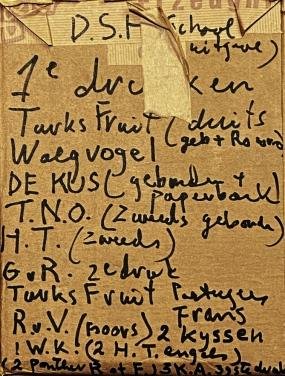 D.S.H School
uitgave)
1e drukken
Turks Fruit (duits
geb + Ro
Walgvogel
DE KUS (gebonden +
paperback)
T.N.O. (Zweeds gebonden)
H.T. (Zweeds)
G.v.R. 2e druk
Turks Fruit Portugees
Frans
R.v.V. (Noors) 2 Kyssen
! W.K. (2 H.T. engels)
(2 Panther R of F) 3 K.A. 39ste druk